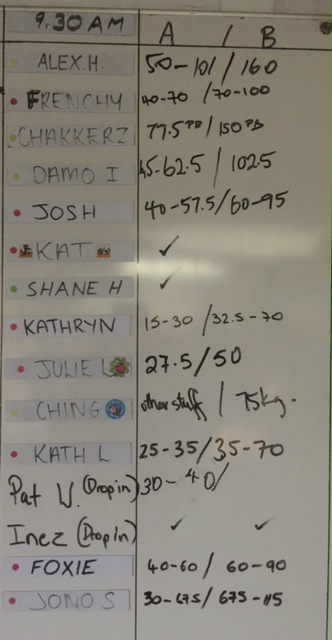 9.30 AM A / B
ALEX.H. 50-101 / 160
FRENCHY 40-70 / 70-100
CHAKKERZ 77.5PB / 150PB
DAMO I 45-62.5 / 102.5
JOSH 40-57.5 / 60-95
KAT ✓
SHANE H ✓
KATHRYN 15-30 / 32.5-70
JULIE L 27.5 / 50
CHING other stuff / 75kg.
KATH L 25-35 / 35-70
Pat V. (Drop in) 30-40 /
Inez (Drop In) ✓ ✓
FOXIE 40-60 / 60-90
JONO S 30-67.5 / 67.5-115